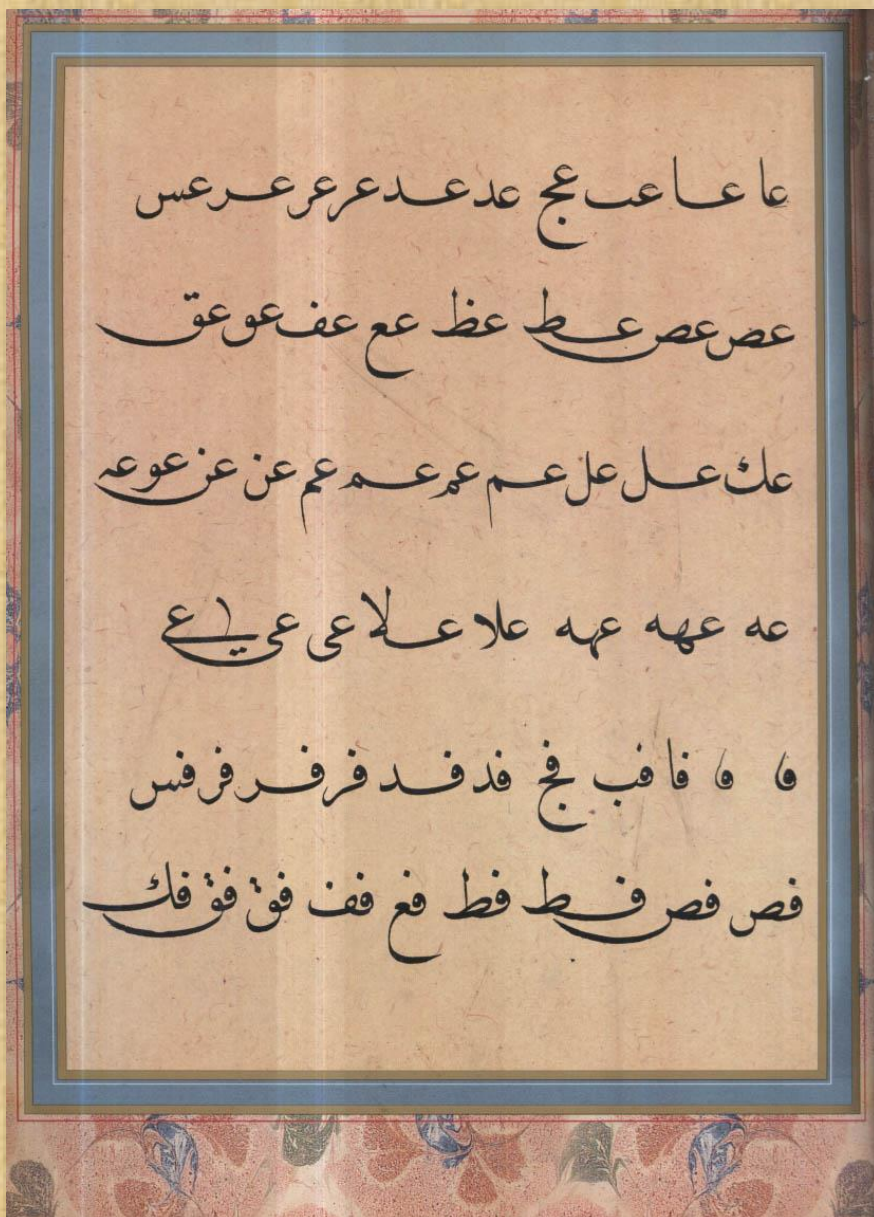 عا عا عب عج عد عد عر عر عر عس
عص عص عط عظ عع عف عو عق
عك عل عل عم عم عم عم عن عن عو عه
عه عهه عهه علا علا عى عى عے
ف فا فب فج فد فد فر فر فر فس
فص فص فط فظ فع فف فق فق فك